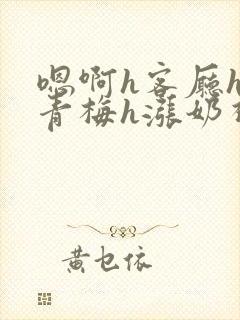 嗯啊h客厅h
青梅h涨奶
黄乜依